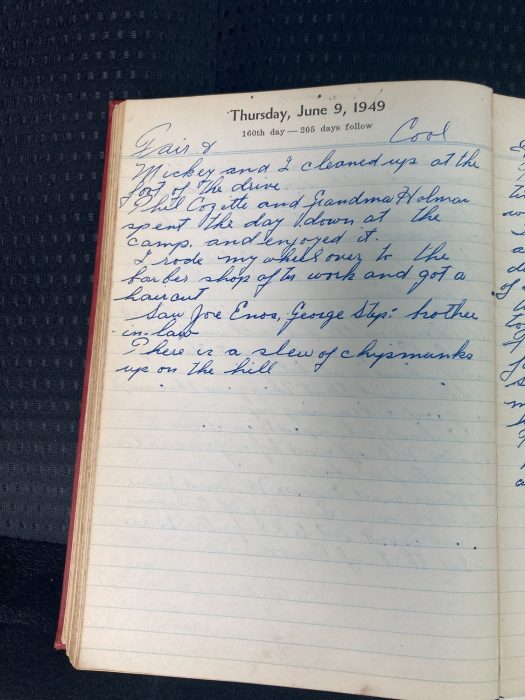 Thursday, June 9, 1949
160th day — 205 days follow
Fair & Cool
Mickey and I cleaned up at the
foot of the drive.
Phil Cozette and Grandma Holman
spent the day down at the
camp. and enjoyed it.
I rode my wheel over to the
barber shop after work and got a
haircut
Saw Joe Enos, George Step- brother
-in-law
There is a slew of chipmunks
up on the hill